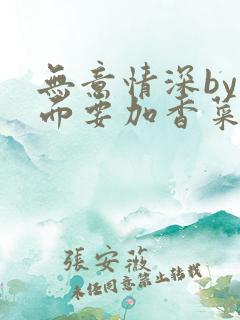 無意情深by
而要加香菜
張安薇
未经同意禁止转载